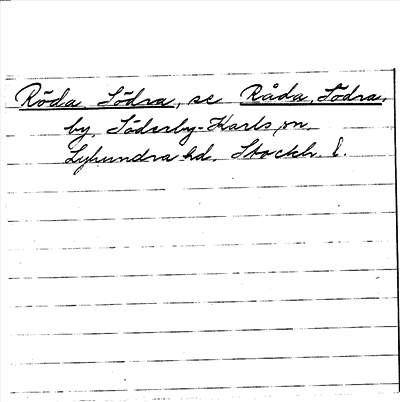 Röda, Södra, se Råda, Södra,
by, Söderby-Karls sn,
Lyhundra hd, Stockh. l.